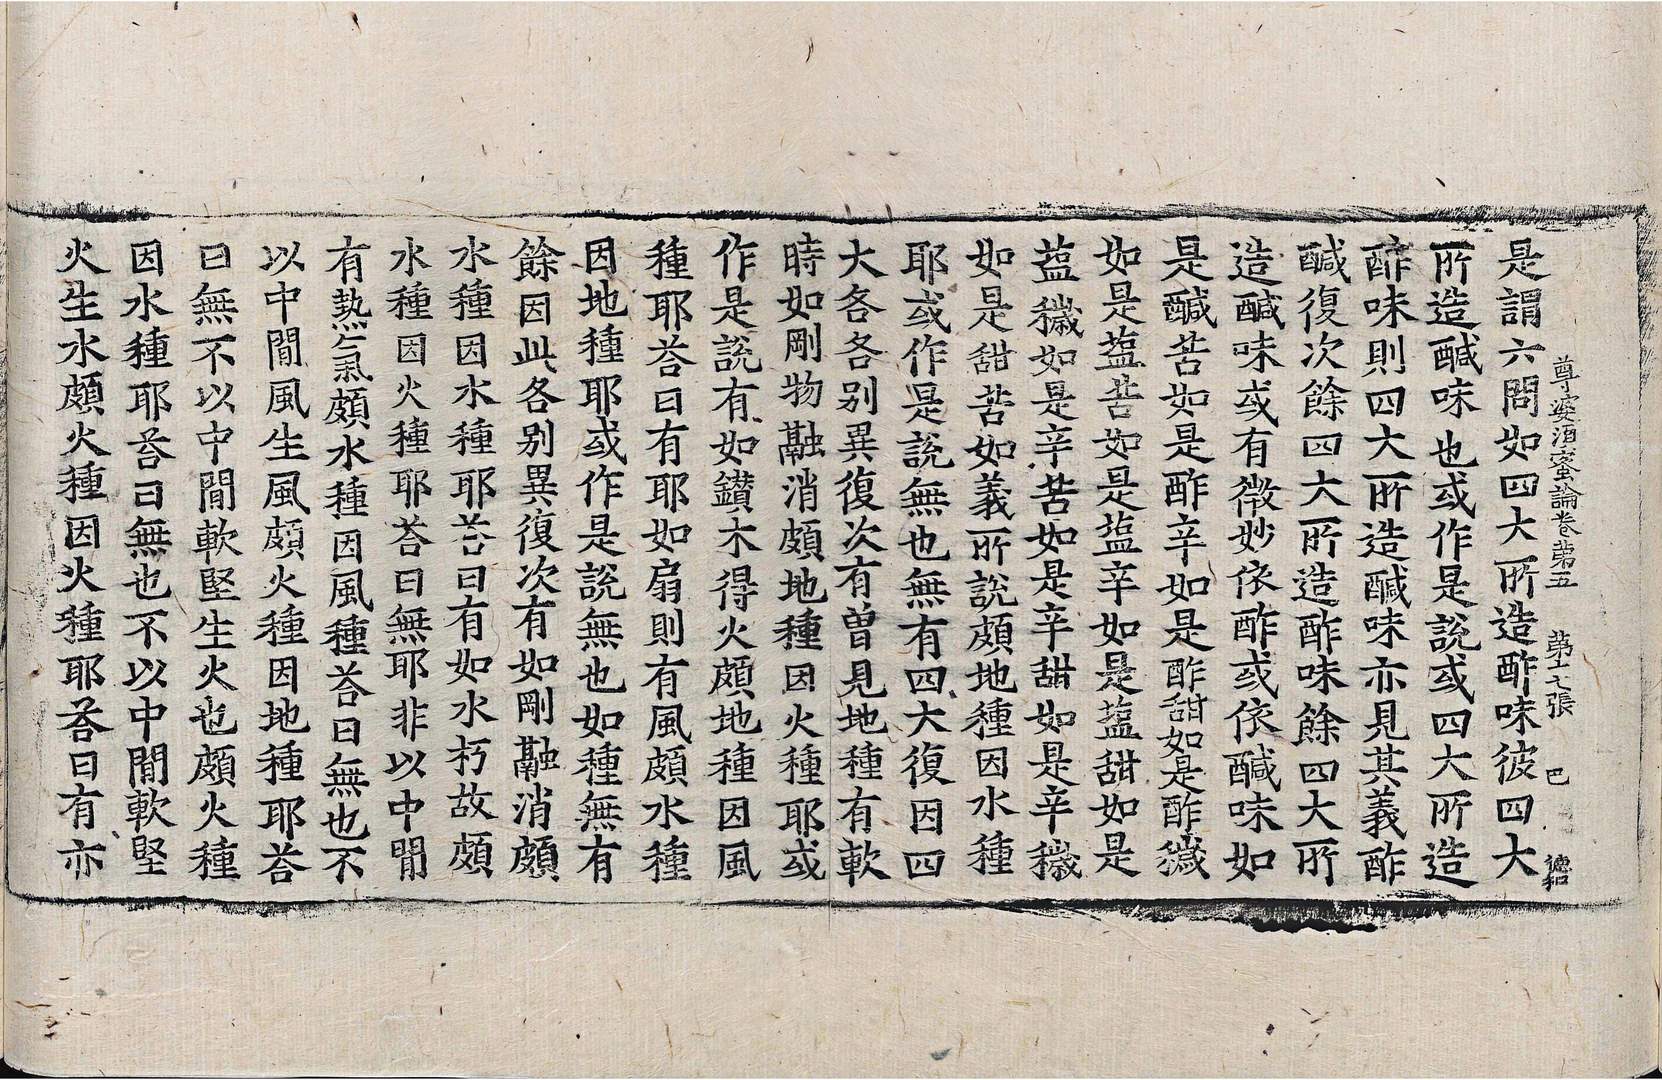 尊婆湏蜜論卷苐五 苐十七張 巳 德和
是謂六問如四大所造酢味彼四大
所造醎味也或作是說或四大所造
酢味則四大所造醎味亦見其義酢
醎復次餘四大所造酢味餘四大所
造醎味或有微妙依酢或依醎味如
是醎苦如是酢辛如是酢甜如是酢穢
如是塩苦如是塩辛如是塩甜如是
塩穢如是辛苦如是辛甜如是辛穢
如是甜苦如義所說頗地種因水種
耶或作是說無也無有四大復因四
大各各別異復次有曽見地種有軟
時如剛物融消頗地種因火種耶或
作是說有如鑚木得火頗地種因風
種耶荅曰有耶如扇則有風頗水種
因地種耶或作是說無也如種無有
餘因此各別異復次有如剛融消頗
水種因水種耶荅曰有如水朽故頗
水種因火種耶荅曰無耶非以中閒
有熱气頗水種因風種荅曰無也不
以中閒風生風頗火種因地種耶荅
曰無不以中閒軟堅生火也頗火種
因水種耶荅曰無也不以中閒軟堅
火生水頗火種因火種耶荅曰有亦